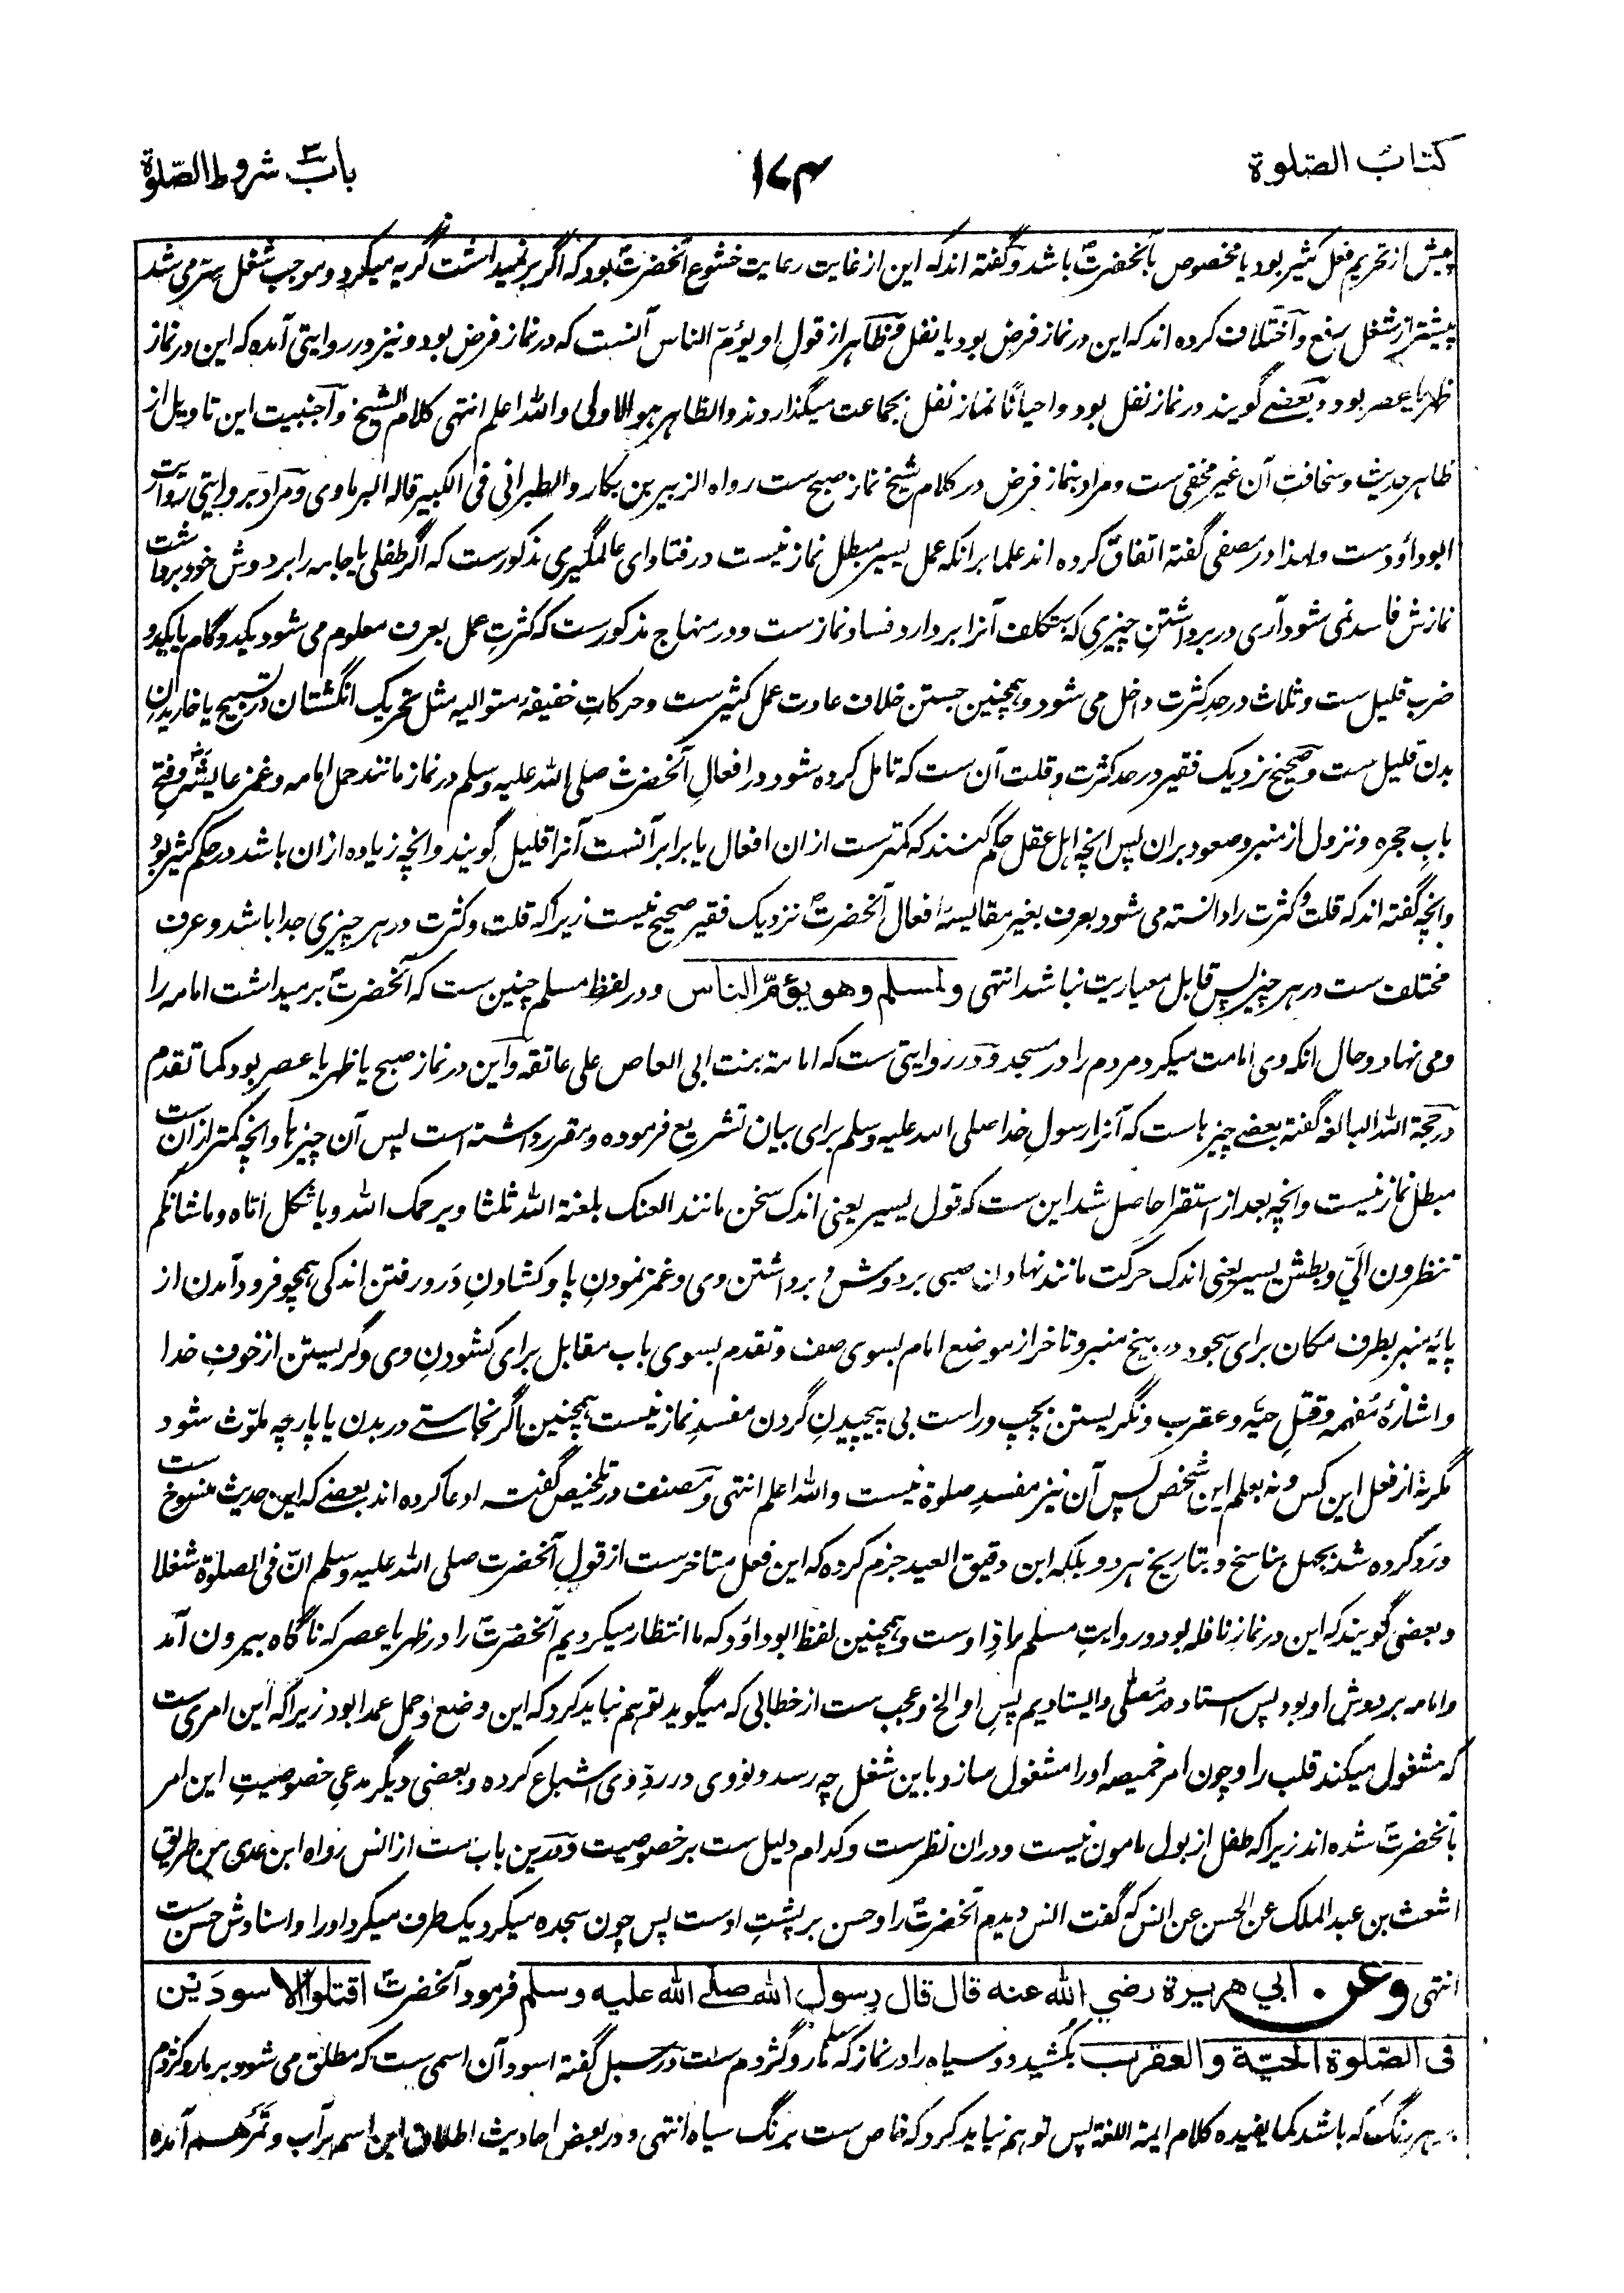 کتاب الصّلوة
۱۷۳
باب۳ شروط الصّلوة
پیش از تحریم فعل کثیر بود یا مخصوص بآنحضرتؐ باشد و گفته اند که این از غایت رعایت خشوع آنحضرتؐ بود که اگر بر نمیداشت گریه میکرد و موجب شغل بیشتر می شد
پیشتر از شغل رفع و اختلاف کرده اند که این در نماز فرض بود یا نفل و ظاهر از قول او یؤمّ الناس آنست که در نماز فرض بود و نیز در روایتی آمده که این در نماز
ظهر یا عصر بود و بعضے گویند در نماز نفل بود و احیانًا نماز نفل بجماعت میگذاردند والظاهر هو الاولی والله اعلم انتهی کلام الشیخ و اجنبیت این تاویل از
ظاهر حدیث و سخافت آن غیر مخفی ست و مراد بنماز فرض در کلام شیخ نماز صبح ست رواه الزبیر بن بکار والطبرانی فی الکبیر قاله البرماوی و مراد بروایتی روایت
ابوداؤد ست ولهذا در مصفی گفته اتفاق کرده اند علما بر انکه عمل یسیر مبطل نماز نیست در فتاوای عالمگیری مذکورست که اگر طفلی یا جامه را بر دوش خود برداشت
نمازش فاسد نمی شود آری در برداشتنِ چیزی که بتکلف آنرا بردارد فساد نماز ست و در منهاج مذکورست که کثرتِ عمل بعرف معلوم می شود یکدو گام یا یکدو
ضرب قلیل ست و ثلاث در حد کثرت داخل می شود و همچنین جستن خلاف عادت عمل کثیرست و حرکاتِ خفیفهٔ متوالیه مثل تحریک انگشتان در تسبیح یا خاریدنِ
بدن قلیل ست و صحیح نزدیک فقیر در حد کثرت و قلت آن ست که تامل کرده شود در افعالِ آنحضرت صلی الله علیه وسلم در نماز مانند حمل امامه و غمز عایشه و فتحِ
بابِ حجره و نزول از منبر و صعود بران پس انچه اهل عقل حکم کنند که کمترست از ان افعال یا برابر آنست آنرا قلیل گویند و انچه زیاده از ان باشد در حکم کثیر بود
و انچه گفته اند که قلت و کثرت را دانسته می شود بعرف بغیر مقایسهٔ افعال آنحضرتؐ نزدیک فقیر صحیح نیست زیراکه قلت و کثرت در هر چیزی جدا باشد و عرف
مختلف ست در هر چیز پس قابل معیاریت نباشد انتهی ولمسلم وهو یؤمّ الناس و در لفظِ مسلم چنین ست که آنحضرتؐ بر میداشت امامه را
و می نهاد و حال انکه وی امامت میکرد مردم را در مسجد و در روایتی ست که امامة بنت ابی العاص علی عاتقه و این در نماز صبح یا ظهر یا عصر بود کما تقدم
در حجة الله البالغه گفته بعضے چیزهاست که آنرا رسولِ خدا صلی الله علیه وسلم برای بیان تشریع فرموده و مقرر داشته است پس آن چیزها و انچه کمتر از ان ست
مبطل نماز نیست و انچه بعد از استقرا حاصل شد این ست که قول یسیر یعنی اندک سخن مانند العنک بلعنة الله ثلثا و یرحمک الله و یا ثکل اماه و ما شانکم
تنظرون الَیّ و بطش یسیر یعنی اندک حرکت مانند نهادن صبی بر دوش و برداشتن وی و غمز نمودنِ پا و کشادنِ دَر و رفتن اندکی همچو فرود آمدن از
پایهٔ منبر بطرف مکان برای سجود در بیخ منبر و تاخر از موضع امام بسوی صف و تقدم بسوی باب مقابل برای کشودنِ وی و گریستن از خوفِ خدا
و اشارهٔ مفهمه و قتلِ حیّه و عقرب و نگریستن بچپ و راست بی پیچیدنِ گردن مفسدِ نماز نیست همچنین اگر نجاستے در بدن یا پارچه ملوّث شود
مگر نه از فعل این کس و نه بعلم این شخص پس آن نیز مفسدِ صلوة نیست والله اعلم انتهی و مصنف در تلخیص گفته ادعا کرده اند بعضے که این حدیث منسوخ ست
و رَد کرده شد بجهل بناسخ و بتاریخ هر دو بلکه ابن دقیق العید جزم کرده که این فعل متاخرست از قولِ آنحضرت صلی الله علیه وسلم انّ فی الصلوة شغلا
و بعضی گویند که این در نمازِ نافله بود و روایتِ مسلم رادّ اوست و همچنین لفظ ابوداؤد که ما انتظار میکردیم آنحضرتؐ را در ظهر یا عصر که ناگاه بیرون آمد
و امامه بر دوشِ او بود پس استاد در مصلّی و ایستادیم پسِ او الخ و عجب ست از خطابی که میگوید توهم نباید کرد که این وضع و حمل عمدا بود زیراکه این امری ست
که مشغول میکند قلب را و چون امر خمیصه او را مشغول سازد باین شغل چه رسد و نووی در ردّ وی اشباع کرده و بعضی دیگر مدعیِ خصوصیتِ این امر
بآنحضرتؐ شده اند زیراکه طفل از بول مامون نیست و دران نظرست و کدام دلیل ست بر خصوصیت و درین باب ست از انس رواه ابن عدی من طریق
اشعث بن عبد الملک عن الحسن عن انس که گفت انس دیدم آنحضرتؐ را و حسن بر پشتِ اوست پس چون سجده میکرد یک طرف میکرد او را و اسنادش حسن ست
انتهی وعن ابي هريرة رضي الله عنه قال قال رسول الله صلے الله عليه وسلم فرمود آنحضرتؐ اقتلوا الاسودَيْن
فی الصّلوة الحيّة والعقرب بکشید دو سیاه را در نماز که مار و کژدم ست در سبل گفته اسود آن اسمی ست که مطلق می شود بر مار و کژدم
بهر رنگ که باشد کما یفیده کلام ایمة اللغة پس توهم نباید کرد که خاص ست برنگ سیاه انتهی و در بعض احادیث اطلاق این اسم بر آب و تَمَر هم آمده